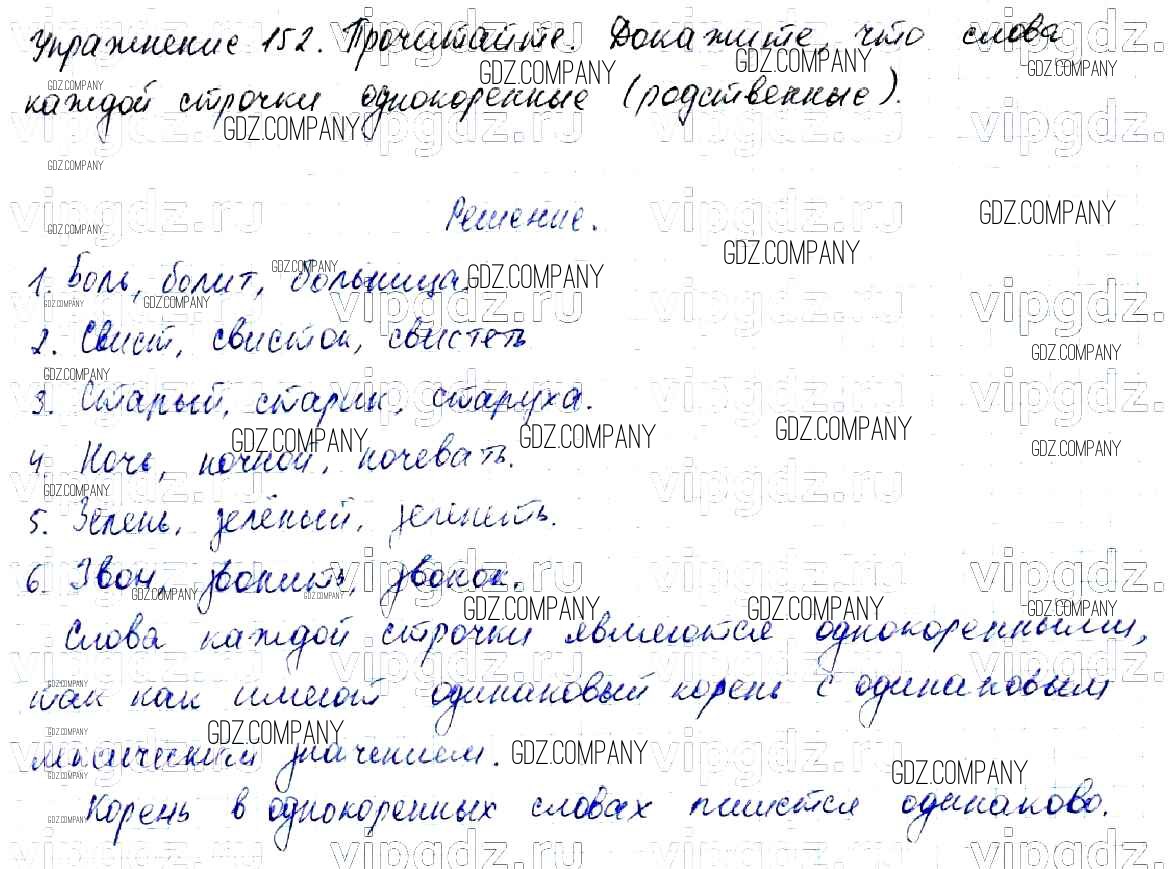 Упражнение 152. Прочитайте. Докажите, что слова
каждой строчки однокоренные (родственные).
Решение.
1. Боль, болит, больница.
2. Свист, свисток, свистеть
3. Старый, старик, старуха.
4. Ночь, ночной, ночевать.
5. Зелень, зелёный, зеленеть.
6. Звон, звонить, звонок.
Слова каждой строчки являются однокоренными,
так как имеют одинаковый корень с одинаковым
лексическим значением.
Корень в однокоренных словах пишется одинаково.
GDZ.COMPANY
vipgdz.ru